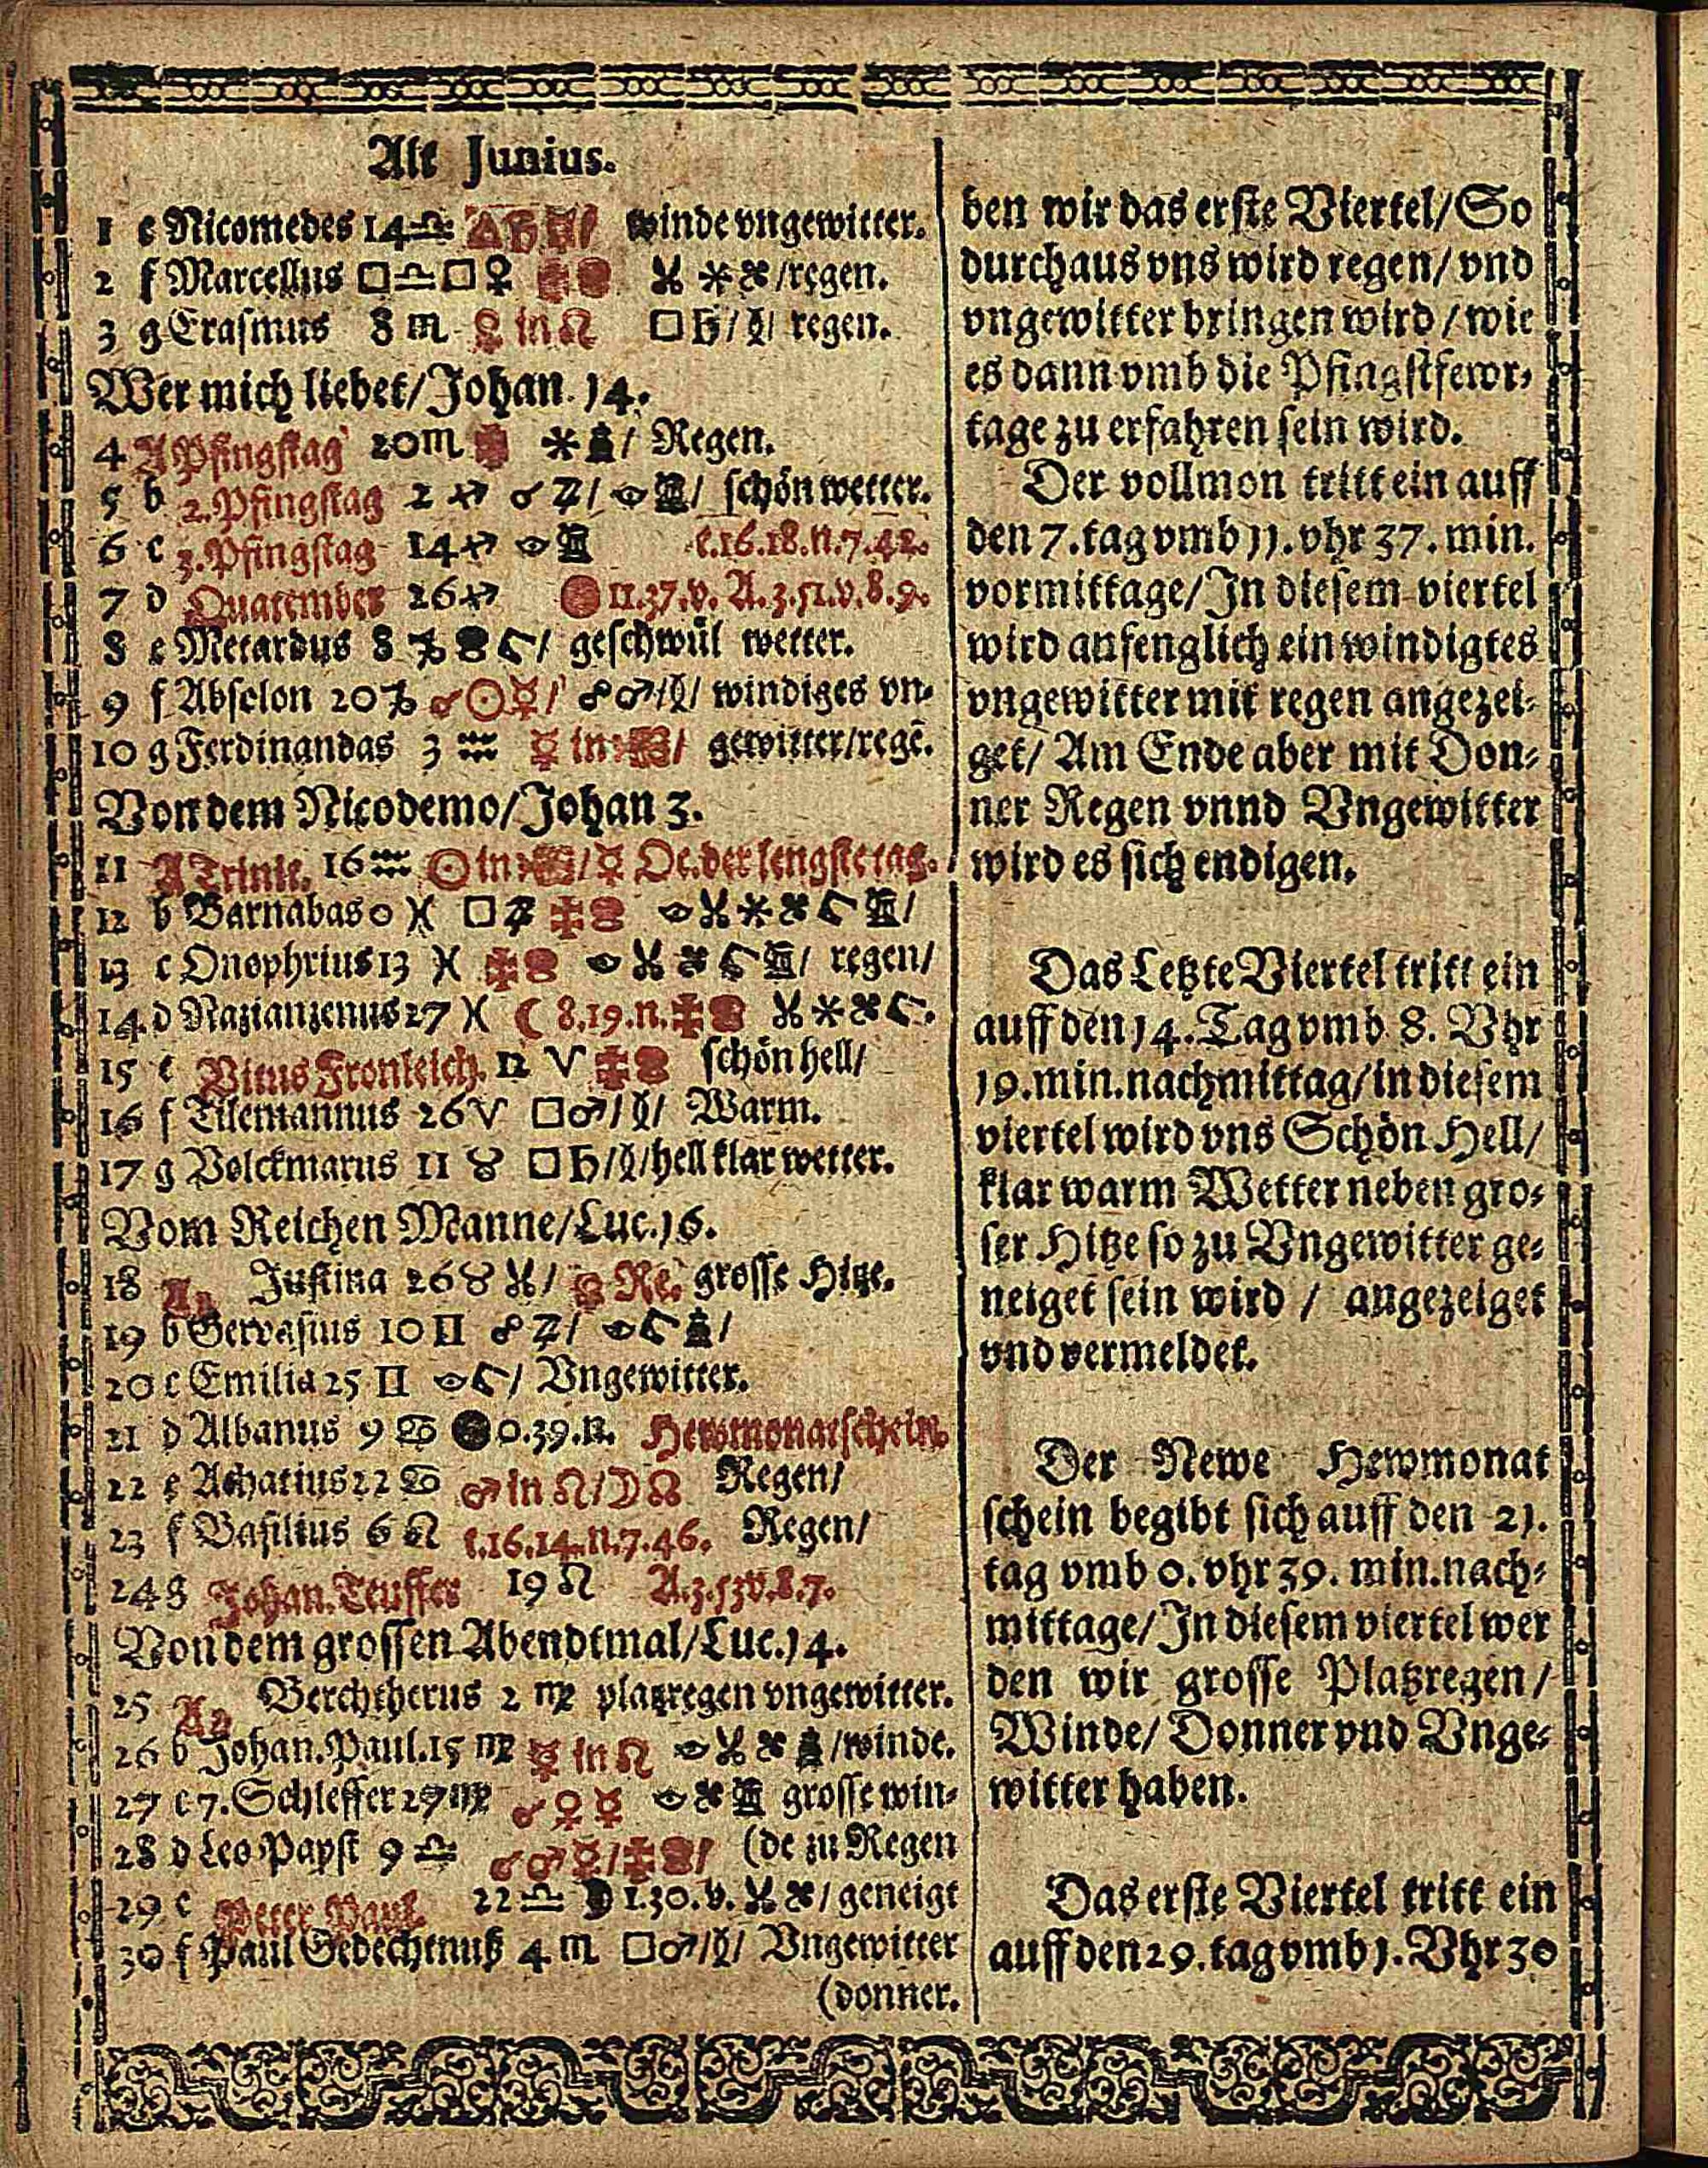 Alt Junius.
1 e Nicomedes 14 ♎ △ ♄ ☿/ winde vngewitter.
2 f Marcellus □ ♎ □ ♀ /regen.
3 g Erasmus 8 ♏ ♀ in ♌ □ ♄/ regen.
Wer mich liebet/Johan. 14.
4 A Pfingstag 20 ♏ Regen.
5 b 2. Pfingstag 2 ♐ ☌ ♃/ schön wetter.
6 c 3. Pfingstag 14 ♐ l.16.18.n.7.42.
7 d Quatember 26 ♐ 11.37.v. A.3.51.v.8.9.
8 e Metardus 8 ♑ / geschwül wetter.
9 f Abselon 20 ♑ ☌ ☉ ☿/ ☍ ♂/ windiges vn-
10 g Ferdinandas 3 ♒ ☿ in ♋/ gewitter/regē.
Von dem Nicodemo/Johan 3.
11 A Trinit. 16 ♒ ☉ in ♋/ ☿ Oc. der lengste tag.
12 b Barnabas 0 ♓ □ ♃ /
13 c Onophrius 13 ♓ / regen/
14. d Nazianzenus 27 ♓ ☾ 8.19.n.
15 e Vitus Fronleich. 12 ♈ schön hell/
16 f Tilemannus 26 ♈ □ ♂/ Warm.
17 g Volckmarus 11 ♉ □ ♄/ /hell klar wetter.
Vom Reichen Manne/Luc.16.
18 A 1. Justina 26 ♉ / Re. grosse Hitze.
19 b Gervasius 10 ♊ ☍ ♃/ /
20 c Emilia 25 ♊ / Vngewitter.
21 d Albanus 9 ♋ ● 0.39.n. Hewmonatschein.
22 e Achatius 22 ♋ ♂ in ♌/☽ ☊ Regen/
23 f Basilius 6 ♌ l.16.14.n.7.46. Regen/
24 g Johan. Teuffer 19 ♌ A.3.53v.8.7.
Von dem grossen Abendtmal/Luc.14.
25 A 2 Berchtherus 2 ♍ platzregen vngewitter.
26 b Johan. Paul. 15 ♍ ☿ in ♌ /winde.
27 c 7. Schleffer 27 ♍ ☌ ♀ ☿ grosse win-
28 d Leo Papst 9 ♎ ☌ ♂ ☿/ / (de zu Regen
29 e Peter Paul. 22 ♎ ☽ 1.30.v. / geneigt
30 f Paul Gedechtnuß 4 ♏ □ ♂/ Vngewitter
(donner.
ben wir das erste Viertel/So
durchaus vns wird regen/vnd
vngewitter bringen wird/wie
es dann vmb die Pfingstfewr-
tage zu erfahren sein wird.
Der vollmon tritt ein auff
den 7. tag vmb 11. vhr 37. min.
vormittage/In diesem viertel
wird anfenglich ein windigtes
vngewitter mit regen angezei-
get/ Am Ende aber mit Don-
ner Regen vnnd Vngewitter
wird es sich endigen.
Das Letzte Viertel tritt ein
auff den 14. Tag vmb 8. Vhr
19. min. nachmittag/in diesem
viertel wird vns Schön Hell/
klar warm Wetter neben gro-
ser Hitze so zu Vngewitter ge-
neiget sein wird / angezeiget
vnd vermeldet.
Der Newe Hewmonat
schein begibt sich auff den 21.
tag vmb 0. vhr 39. min. nach-
mittage/In diesem viertel wer
den wir grosse Platzregen/
Winde/ Donner vnd Vnge-
witter haben.
Das erste Viertel tritt ein
auff den 29. tag vmb 1. Vhr 30